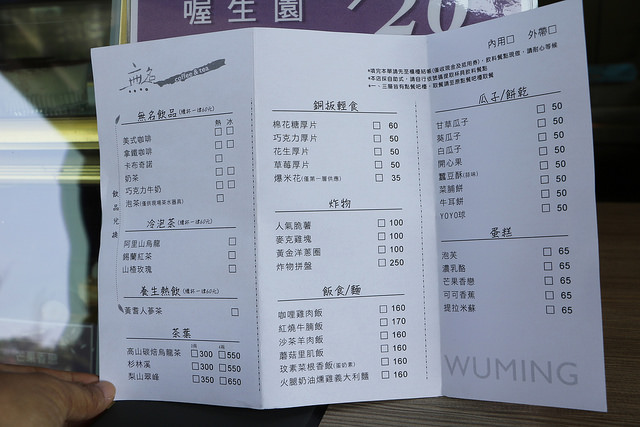 喔生園
20
無名
coffee & tea
無名飲品(擇杯一律60元)
熱 冰
美式咖啡
拿鐵咖啡
卡布奇諾
奶茶
巧克力牛奶
泡茶(僅供現場茶水器具)
飲品兌換
冷泡茶(擇杯一律60元)
阿里山烏龍
錫蘭紅茶
山楂玫瑰
養生熱飲(擇杯一律60元)
黃耆人蔘茶
茶葉
高山碳焙烏龍茶 300 550
杉林溪 300 550
梨山翠峰 350 650
銅板輕食
棉花糖厚片 60
巧克力厚片 50
花生厚片 50
草莓厚片 50
爆米花(僅第一廳供應) 35
炸物
人氣脆薯 100
麥克雞塊 100
黃金洋蔥圈 100
炸物拼盤 250
飯食/麵
咖哩雞肉飯 160
紅燒牛腩飯 170
沙茶羊肉飯 160
蘑菇里肌飯 160
玟素菜根香飯(蛋奶素) 160
火腿奶油燻雞義大利麵 160
內用 外帶
瓜子/餅乾
甘草瓜子 50
葵瓜子 50
白瓜子 50
開心果 50
蠶豆酥(蒜味) 50
菜脯餅 50
牛耳餅 50
YOYO球 50
蛋糕
泡芙 65
濃乳酪 65
芒果香戀 65
可可香蕉 65
提拉米蘇 65
WUMING